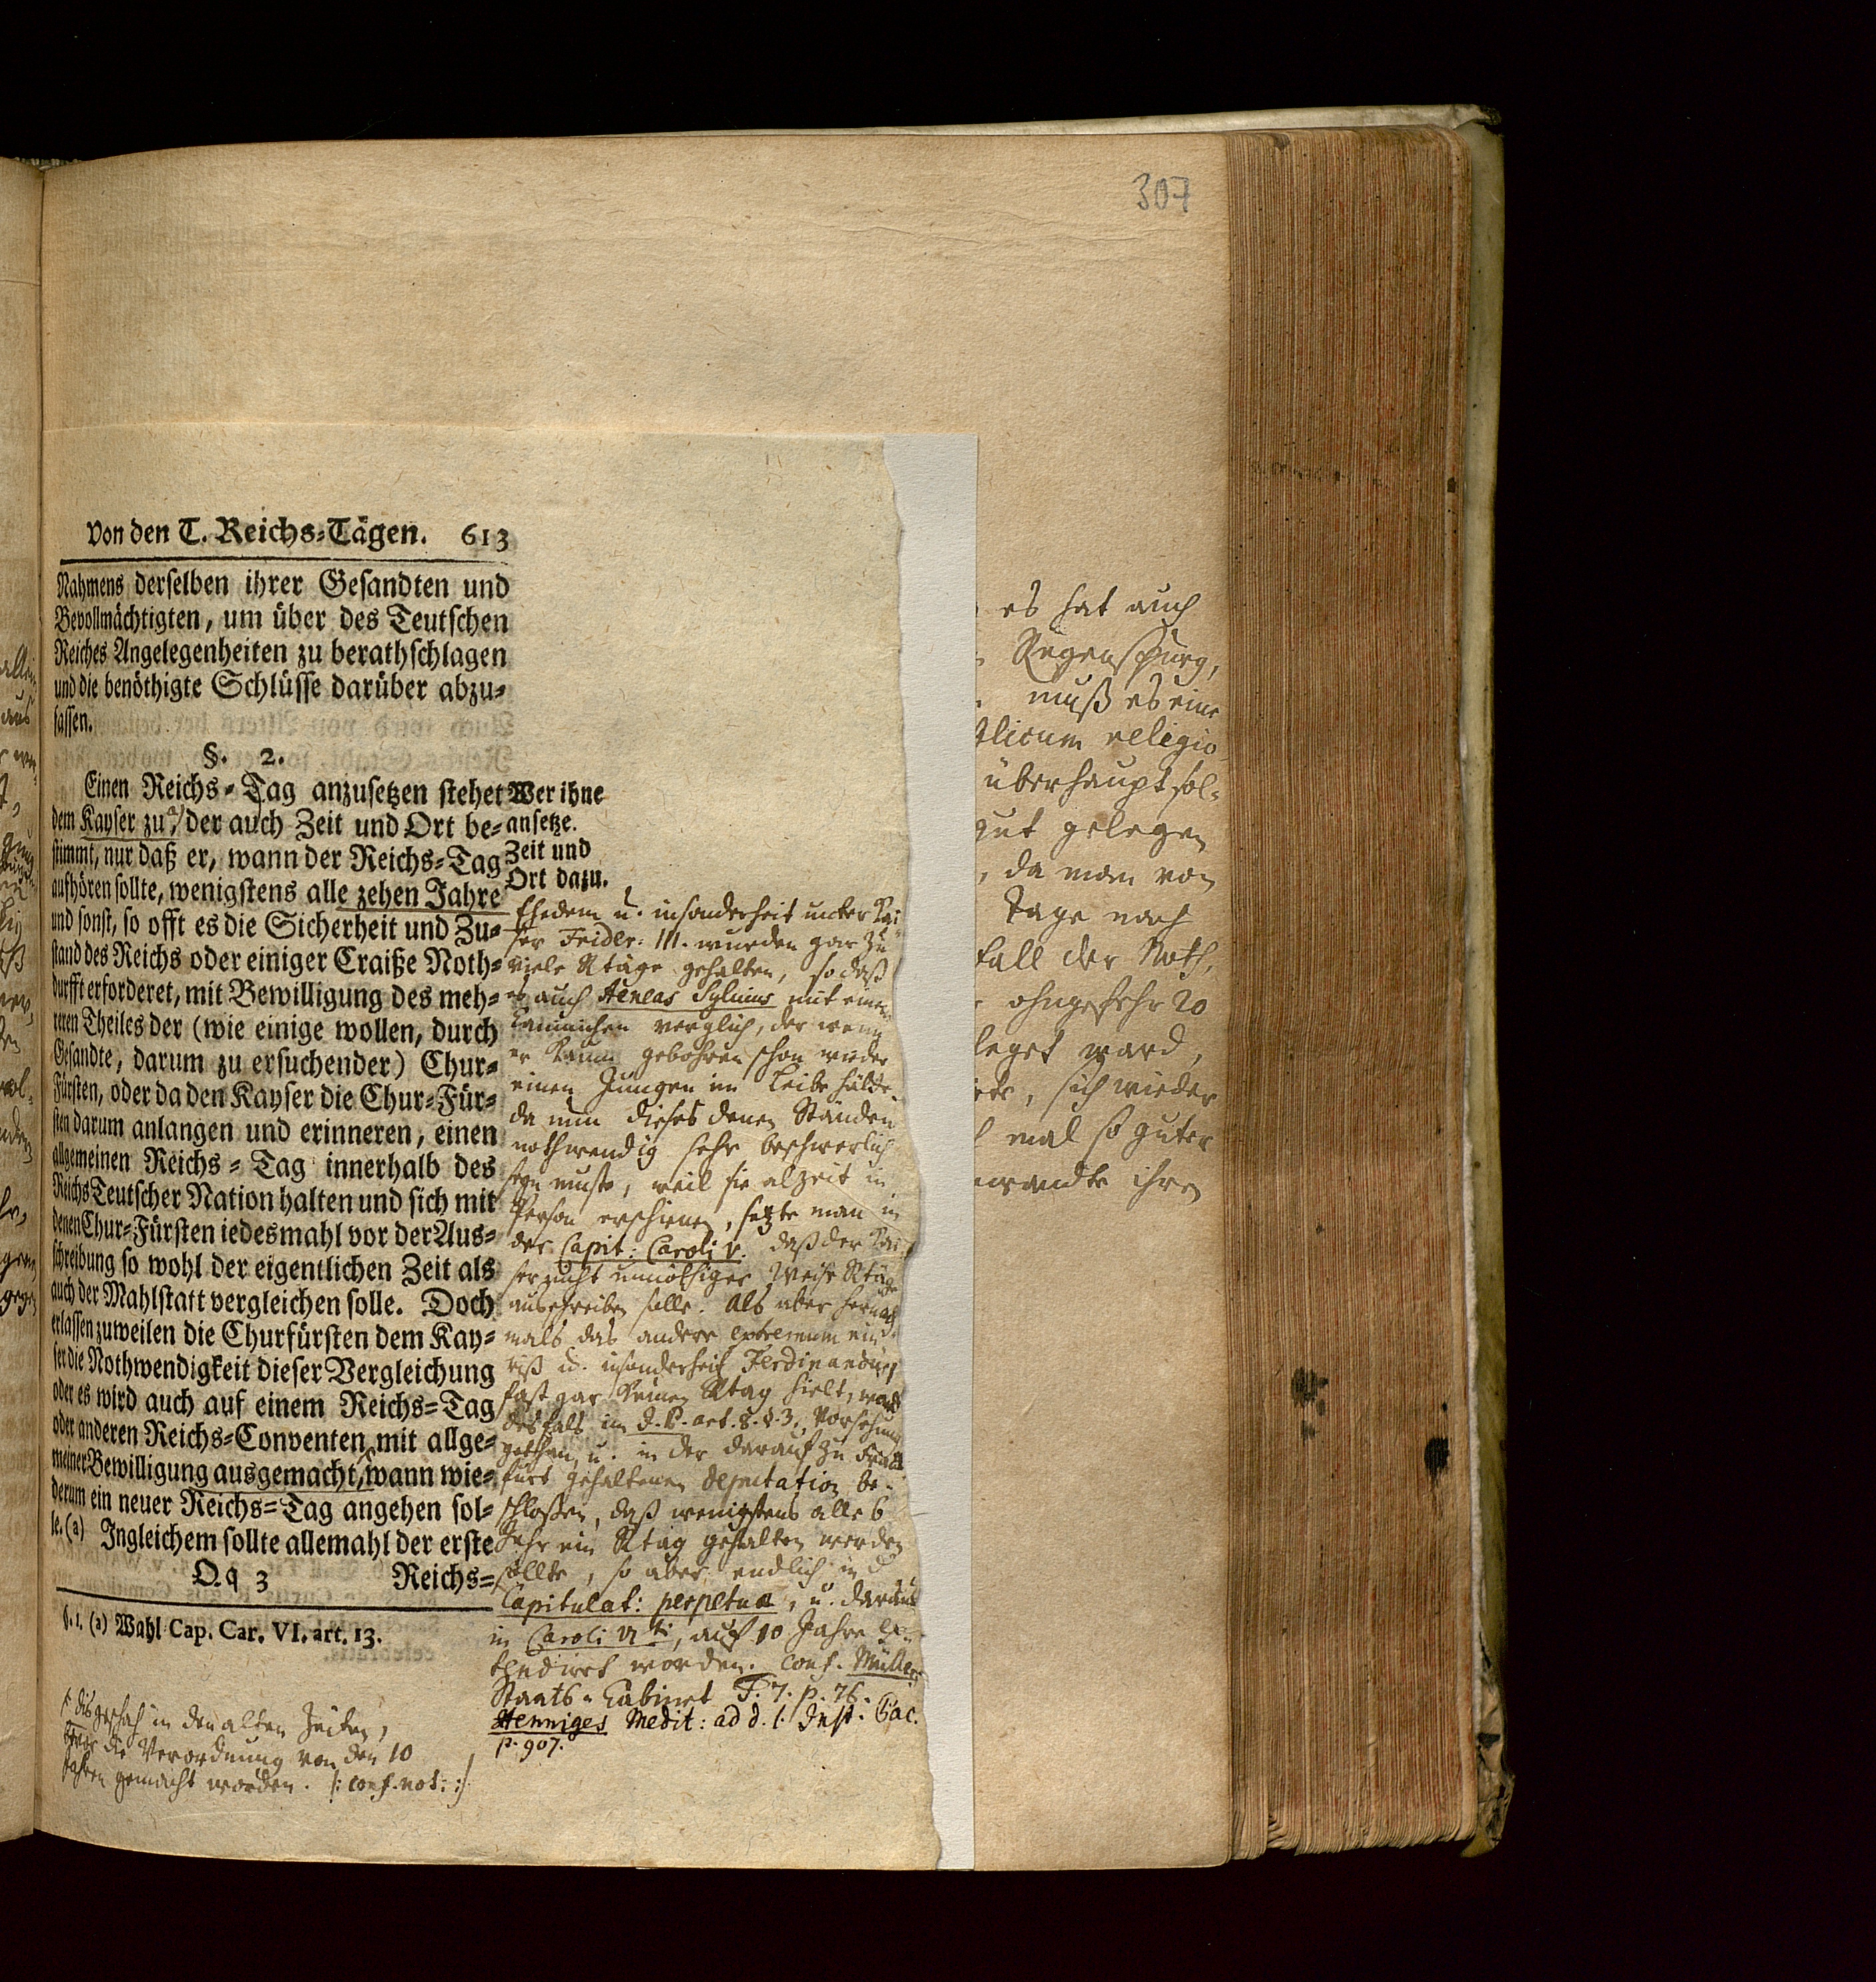 307
Von den T. Reichs-Tägen. 613
Nahmens derselben ihrer Gesandten und
Bevollmächtigten, um über des Teutschen
Reiches Angelegenheiten zu berathschlagen
und die benöthigte Schlüsse darüber abzu-
fassen.
§. 2.
Einen Reichs-Tag anzusetzen stehet
dem Kayser zu a) der auch Zeit und Ort be-
stimmt, nur daß er, wann der Reichs-Tag
aufhören sollte, wenigstens alle zehen Jahre
und sonst, so offt es die Sicherheit und Zu-
stand des Reichs oder einiger Craiße Noth-
durfft erforderet, mit Bewilligung des meh-
reren Theiles der (wie einige wollen, durch
Gesandte, darum zu ersuchender) Chur-
Fürsten, oder da den Kayser die Chur-Für-
sten darum anlangen und erinneren, einen
allgemeinen Reichs-Tag innerhalb des
Reichs Teutscher Nation halten und sich mit
denen Chur-Fürsten iedesmahl vor der Aus-
schreibung so wohl der eigentlichen Zeit als
auch der Mahlstatt vergleichen solle. Doch
erlassen zuweilen die Churfürsten dem Kay-
ser die Nothwendigkeit dieser Vergleichung
oder es wird auch auf einem Reichs-Tag
oder anderen Reichs-Conventen mit allge-
meiner Bewilligung ausgemacht, wann wie-
derum ein neuer Reichs-Tag angehen sol-
le. (a) Ingleichem sollte allemahl der erste
Qq 3 Reichs-
§. 1. (a) Wahl Cap. Car. VI. art. 13.
Wer ihne
ansetze.
Zeit und
Ort dazu.
Ehedem u. insonderheit unter Kai-
ser Frider: III. wurden gar zu
viele Rtäge gehalten, so daß
es auch Aeneas Sylvius mit einem
Caninichen verglich, der wenn
er kaum gebohren schon wieder
einen Jungen im Leibe hätte.
da nun dieses denen Ständen
nothwendig sehr beschwerlich
seyn muste, weil sie alzeit in
Person erschienen, setzte man in
der Capit: Caroli V. daß der Kai-
ser nicht unnöthiger Weise Rtäge
ausschreiben solle. Als aber hernach
mals das andere extremum ein-
riß u. insonderheit Ferdinandus
fast gar keinen Rtag hielt, ward
desfals im J. P. art. 8. §. 3. Vorsehung
gethan, u. in der darauf zu Franck
furt gehaltenen deputation be-
schloßen, daß wenigstens alle 6
Jahr ein Rtag gehalten werden
sollte, so aber endlich in d
Capitulat: perpetua, u. daraus
in Caroli VI ti, auf 10 Jahre ex-
tendiret worden. conf. Müllers
Staats-Cabinet T. 7. p. 76.
Henniges Medit: ad d. l. Inst. Pac.
p. 907.
dis geschah in den alten Zeiten,
die Verordnung von den 10
Jahren gemacht worden. /: conf. not: :/
es hat auch
Regenspurg,
muß es eine
religio
überhaupt sol-
gut gelegen
, da man von
Tage nach
fall der Noth,
ohngefehr 20
leget ward,
, sich wieder
mal so guter
wandte ihren